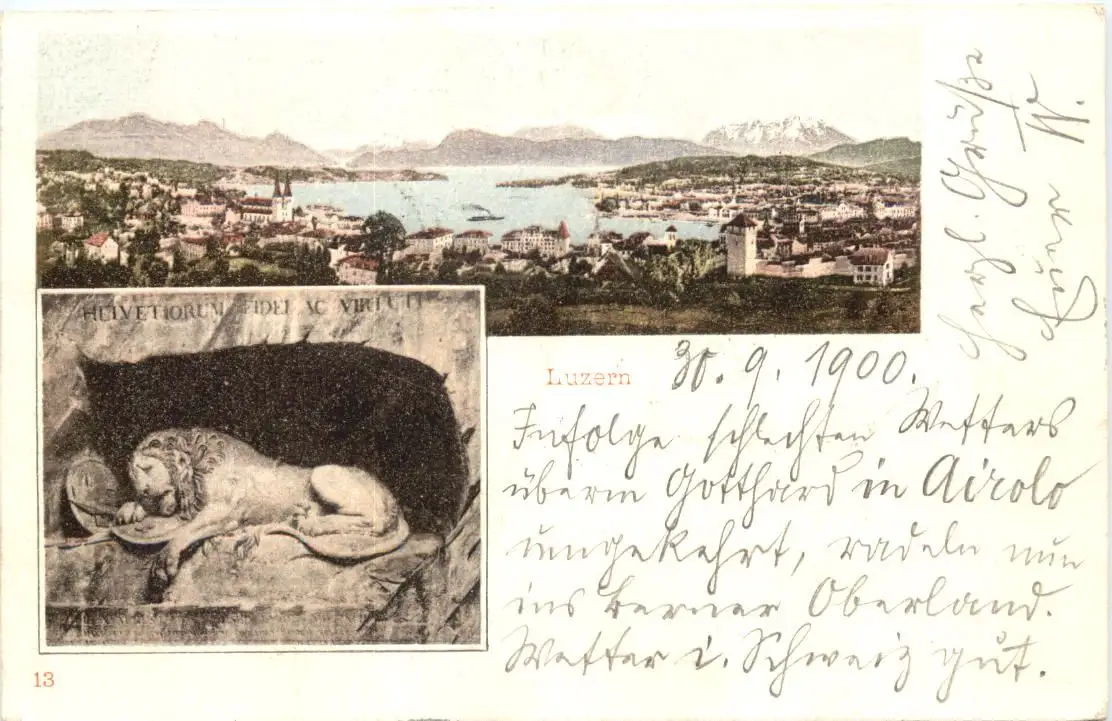 HELVETIORUM FIDEI AC VIRTUTI
Luzern
30. 9. 1900.
Infolge schlechten Wetters
überm Gotthard in Airolo
umgekehrt, radeln nun
ins Berner Oberland.
Wetter i. Schweiz gut.
Herzl. Grüße
W.
13